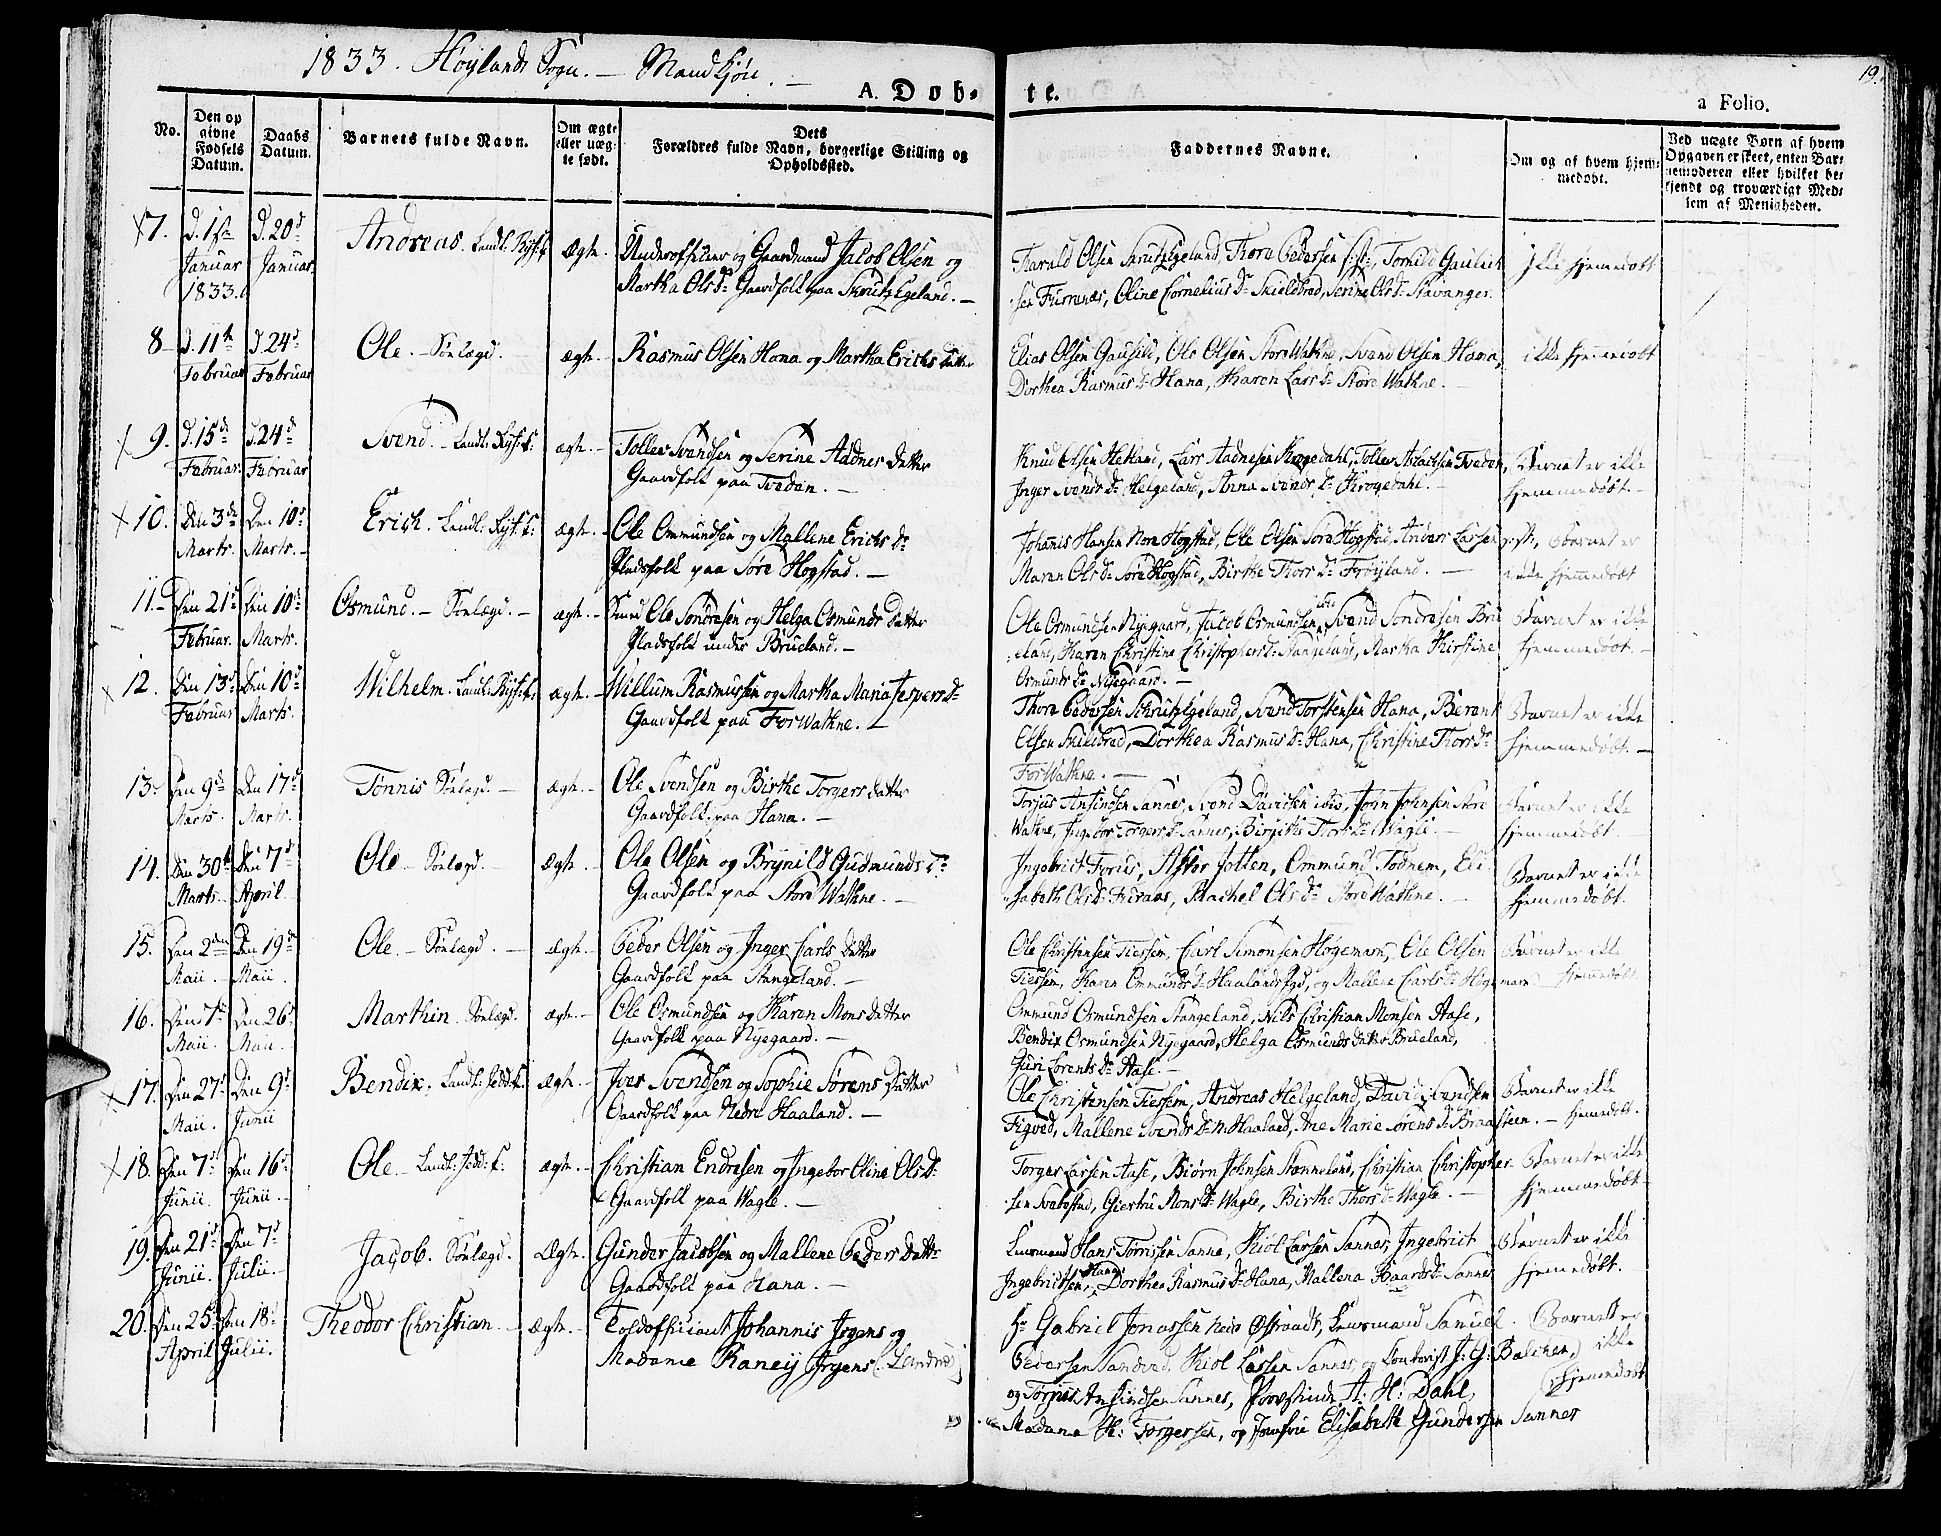 1833. Høylands Sogn. — Mandkjøn. —
19.
A. Døb-te.
a Folio.
No.
Den opgivne Fødsels Datum.
Daabs Datum.
Barnets fulde Navn.
Om ægte eller uægte født.
Dets Forældres fulde Navn, borgerlige Stilling og Opholdssted.
Faddernes Navne.
Om og af hvem hjemmedøbt.
Ved uægte Børn af hvem Opgaven er skeet, enten Barnemoderen eller hvilket bekjendt og troværdigt Medlem af Menigheden.
7. d. 1ste Januar 1833. d. 20d Januar. Andreas. Ægte. Underofficeer og Gaardmand Jacob Olsen og
Martha Olsdr Gaardfolk paa Skrutz Egeland. —
Harald Olsen Skrutz Egeland, Thore Pedersen, Tornild
Furrenæs, Oline Cornelius Dr Skieldbred, Serine Ols Dr Stavanger.
Ikke hjemmedøbt
8 d. 11te Februar d. 24d Februar Ole. — Sønlægd. ægte. — Rasmus Olsen Hana og Martha Erichs Datter
Elias Olsen Gausild, Ole Olsen Store Wathne, Svend Olsen Hana,
Dorthea Rasmus Dr Hana, Karen Lars Dr Store Wathne. —
ikke hjemmedøbt
9. d. 15de Februar. d. 24de Februar Svend. ægte. — Tollev Svendsen og Serine Aadnes Datter
Gaardfolk paa Tvedten. —
Knud Olsen Hetland, Lars Aadnesen Krogedahl, Tollev Aslachsen Tvedten,
Inger Svends Dr Helgeland, Anna Svends Dr Krogedahl. —
Barnet er ikke
hjemmedøbt. —
10. Den 3de Marts. Den 10d Marts. — Erich. ægte. — Ole Ommundsen og Mallene Erichs Dr
Pladsfolk paa Søre Hogstad. —
Johannis Hansen Nore Hogstad, Ole Olsen Søre Hogstad, Anders Larsen
Maren Ols Dr Søre Hogstad, Birthe Thors Dr Frøyland. —
Barnet er
ikke hjemmedøbt
11. — Den 21d Februar. Den 10d Marts. Osmund. — Sønlægd. — ægte. — Ole Sondresen og Helga Osmunds Datter
Pladsfolk under Brueland. —
Ole Osmundsen Nyegaard, Jacob Osmundsen ibid Svend Sondresen Bru
eland, Karen Christine Christophers Dr Stangeland, Martha Kirstine
Osmunds Dr Nyegaard. —
Barnet er ikke
hjemmedøbt. —
12. Den 13d Februar Den 10d Marts. Wilhelm. ægte. — Willum Rasmussen og Martha Maria Jespers Dr
Gaardfolk paa For Wathne. —
Thore Pedersen Skrutz Egeland, Svend Torstensen Hana, Berent
Elsen Skieldbred, Dorthea Rasmus Dr Hana, Christine Thors Dr
For Wathne. —
Barnet er ikke
hjemmedøbt. —
13. Den 9de Marts. Den 17d Marts. Tønnis Sønlægd. — ægte. — Ole Svendsen og Birthe Torgers Datter
Gaardfolk paa Hana. —
Torjus Ansindsen Sannes, Svend Davidsen ibid, Jørn Johnsen Store
Wathne, Ingebor Torgers Dr Sannes, Birgithe Thors Dr Wagle. —
Barnet er ikke
hjemmedøbt. —
14. Den 30te Marts. Den 7d April. Ole — Sønlægd. — Ægte — Ole Olsen og Brynild Gudmunds Dr
Gaardfolk paa Store Wathne. —
Ingebrict Foraas, Assor Jotten, Ommund Todnem, Eli
sabeth Ols Dr Furaas, Rachel Ols Dr Store Wathne. —
Barnet er ikke
hjemmedøbt.
15. Den 2den Maii. Den 19d Maii. Ole. — Sønlægd. — ægte — Peder Olsen og Inger Carls Datter
Gaardfolk paa Stangeland. —
Ole Christensen Tiessem, Carl Simonsen Høgemark, Ole Olsen
Tiessem, Karen Ommunds Dr Haaland, og Mallene Carls Dr Høgemark.
Barnet er ikke
hjemmedøbt
16. Den 7d Maii. Den 26d Maii. Marthin. Sønlægd. ægte. — Ole Osmundsen og Karen Mons Datter
Gaardfolk paa Nyegaard. —
Ommund Osmundsen Stangeland, Nils Christian Monsen Aase,
Bendix Osmundsen Nyegaard, Helga Osmunds Datter Brueland,
Guri Lorents Dr Aase. —
17. Den 27d Maii. Den 9d Junii Bendix. ægte. — Iver Svendsen og Sophie Sørens Datter
Gaardfolk paa Nedre Haaland. —
Ole Christensen Tiessem, Andreas Helgeland, David Svendsen
Figved, Mallene Svends Dr N. Haaland, Ane Marie Sørens Dr Braasteen. —
Barnet er ikke
hjemedøbt.
18. Den 7d Junii Den 16d Junii. Ole — ægte. — Christian Endresen og Ingebor Oline Ols Dr
Gaardfolk paa Wagle. —
Torger Larsen Aase, Biørn Johnsen Stemmeland, Christian Christopher
sen Svebestad, Giertru Mons Dr Wagle, Birthe Thors Dr Wagle. —
Barnet er ikke
hjemmedøbt —
19. Den 21d Junii. Den 7d Julii. — Jacob. Sønlægd. Ægte. Gunder Jacobsen og Mallene Peders Datter
Gaardfolk paa Hana. —
Lensmand Hans Torrissen Sanne, Kiøl Larsen Sannes, Ingebrict
Ingebrictsen, Hana Dorthea Rasmus Dr Hana, Mallena Baards Dr Sannes
Barnet er ikke
hjemedøbt.
20. Den 25d April Den 18d Julii. Theodor Christian. — ægte. — Toldofficiant Johannis Irgens og
Madame Raney Irgens
Hr Gabriel Jonassen Østraadt, Lensmand Samuel
Pedersen Sandved, Kiøl Larsen Sannes og J: G: Balchen,
og Torjus Ansindsen Sannes, A: H: Dahl,
Madame K: Torgersen, og Jomfrue Elisabeth Gundersen Sannes
Barnet er
ikke
hjemedøbt